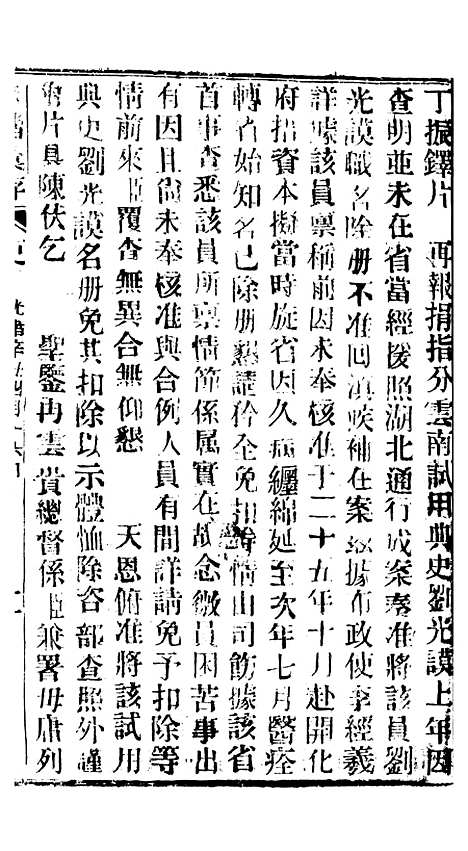 丁振鐸片　再報捐指分雲南試用典史劉光謨上年因
查明並未在省當經援照湖北通行成案奏准將該員劉
光謨職名除册不准回滇候補在案據布政使李經羲
詳據該員稟稱前因未奉核准于二十五年十月赴開化
府措資本擬當時旋省因久病纏綿延至次年七月醫痊
轉省始知名已除册懇請矜全免扣情由司飭據該省
首事查悉該員所禀情節係属實在故念微員困苦事出
有因且尚未奉核准與合例人員有間詳請免予扣除等
情前來臣覆查無異合無仰懇　天恩俯准將該試用
典史劉光謨名册免其扣除以示體恤除咨部查照外謹
附片具陳伏乞　聖鑒再雲貴總督係臣兼署毋庸列